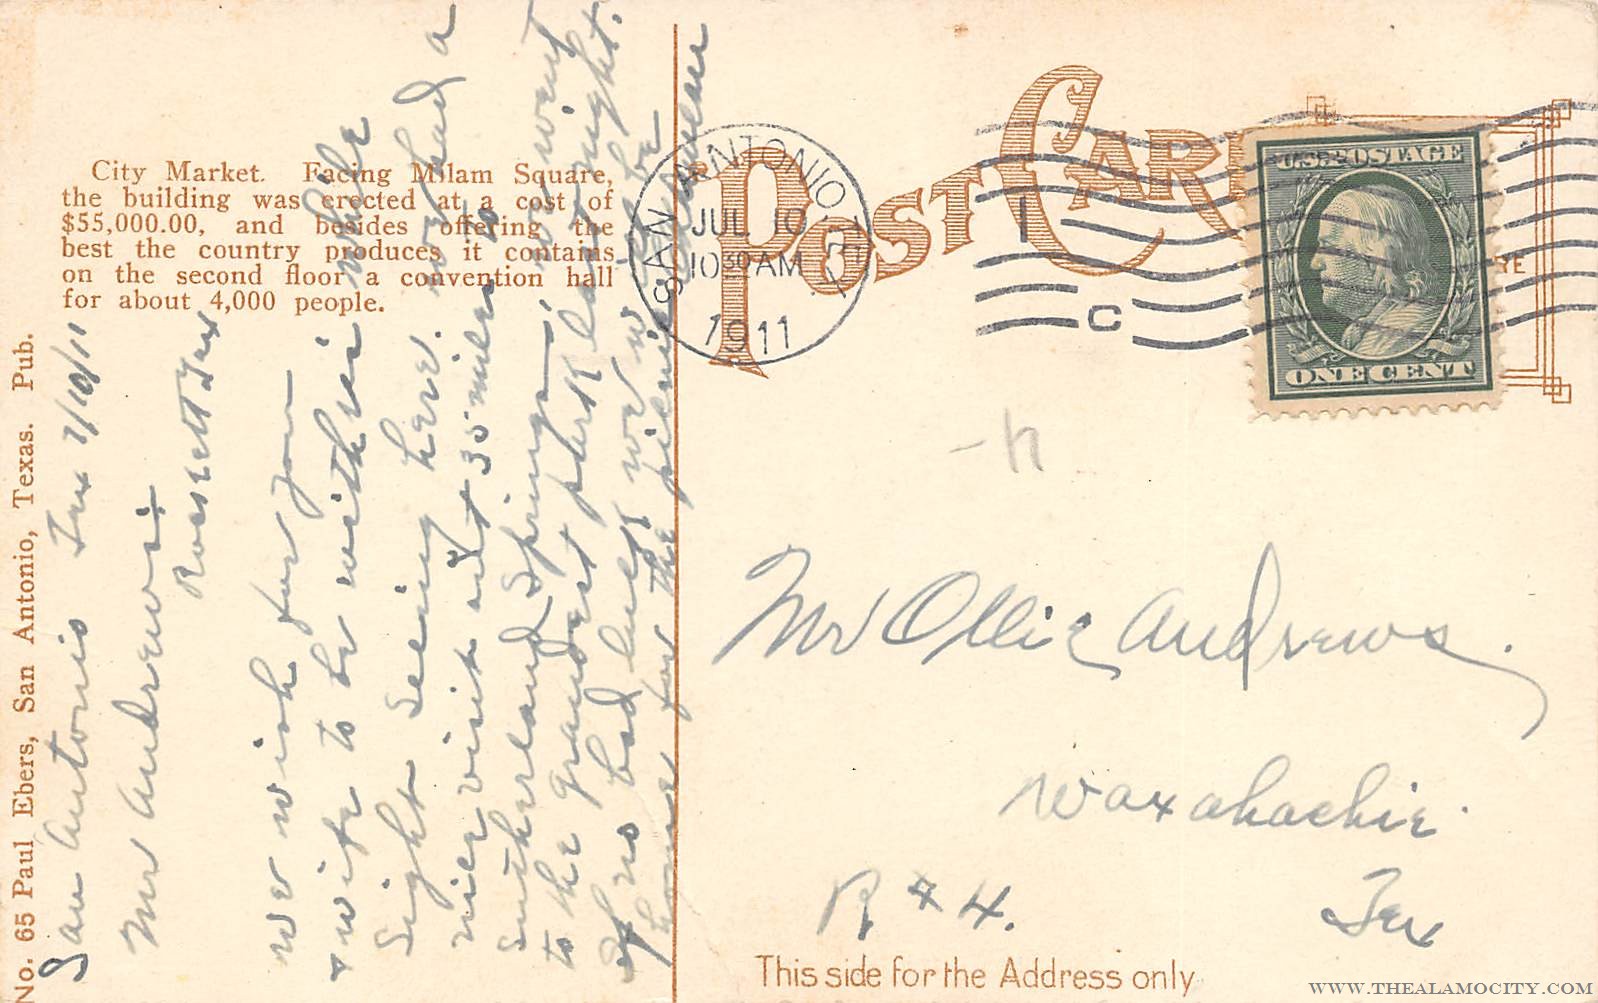 City Market. Facing Milam Square,
the building was erected at a cost of
$55,000.00, and besides offering the
best the country produces it contains
on the second floor a convention hall
for about 4,000 people.
No. 65 Paul Ebers, San Antonio, Texas. Pub.
San Antonio Tex 7/10/11
Mr Andrews
Rossett Tex
We wish for you
+ wife to be with us while
sight seeing here. we had a
nice visit out 30 miles to
Sutherland Springs, we went
to the grandest park last night.
if no bad luck we will be
home for the picnic
POST CARD
SAN ANTONIO, TEX.
JUL 10
10 30 AM
1911
1
C
U.S. POSTAGE
ONE CENT
Mr Ollie Andrews.
Waxahachie
R # 4. Tex
This side for the Address only
WWW.THEALAMOCITY.COM